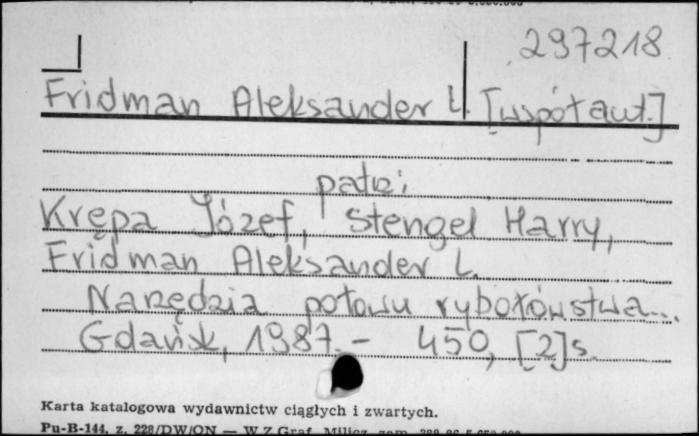 297218
Fridman Aleksander L. [współaut.]
patrz:
Krępa Józef, Stengel Harry,
Fridman Aleksander L.
Narzędzia połowu rybołówstwa...
Gdańsk, 1987. - 450, [2] s.
Karta katalogowa wydawnictw ciągłych i zwartych.
Pu-B-144, z. 228/DW/ON — WZGraf. Milicz, zam.